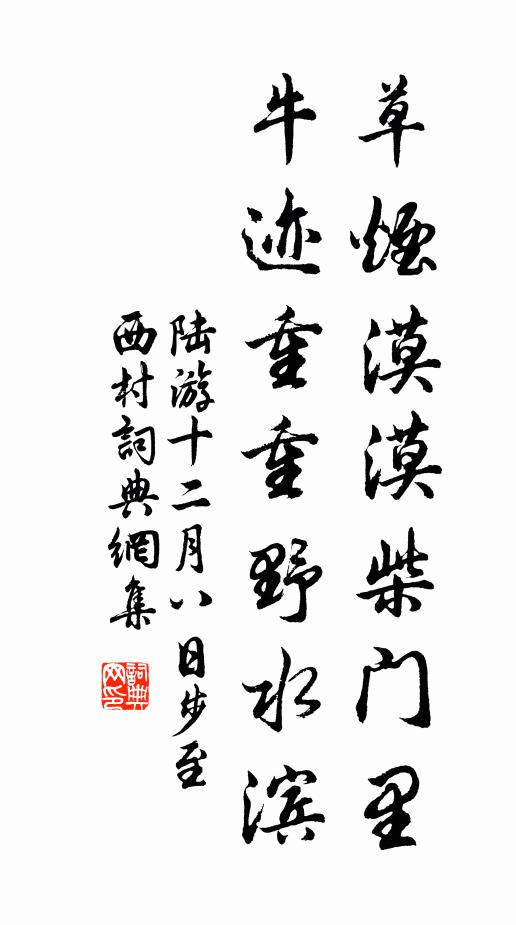 草煙漠漠柴门里
牛迹重重野水滨
陆游十二月八日步至
西村詞典網集
詞典
网印